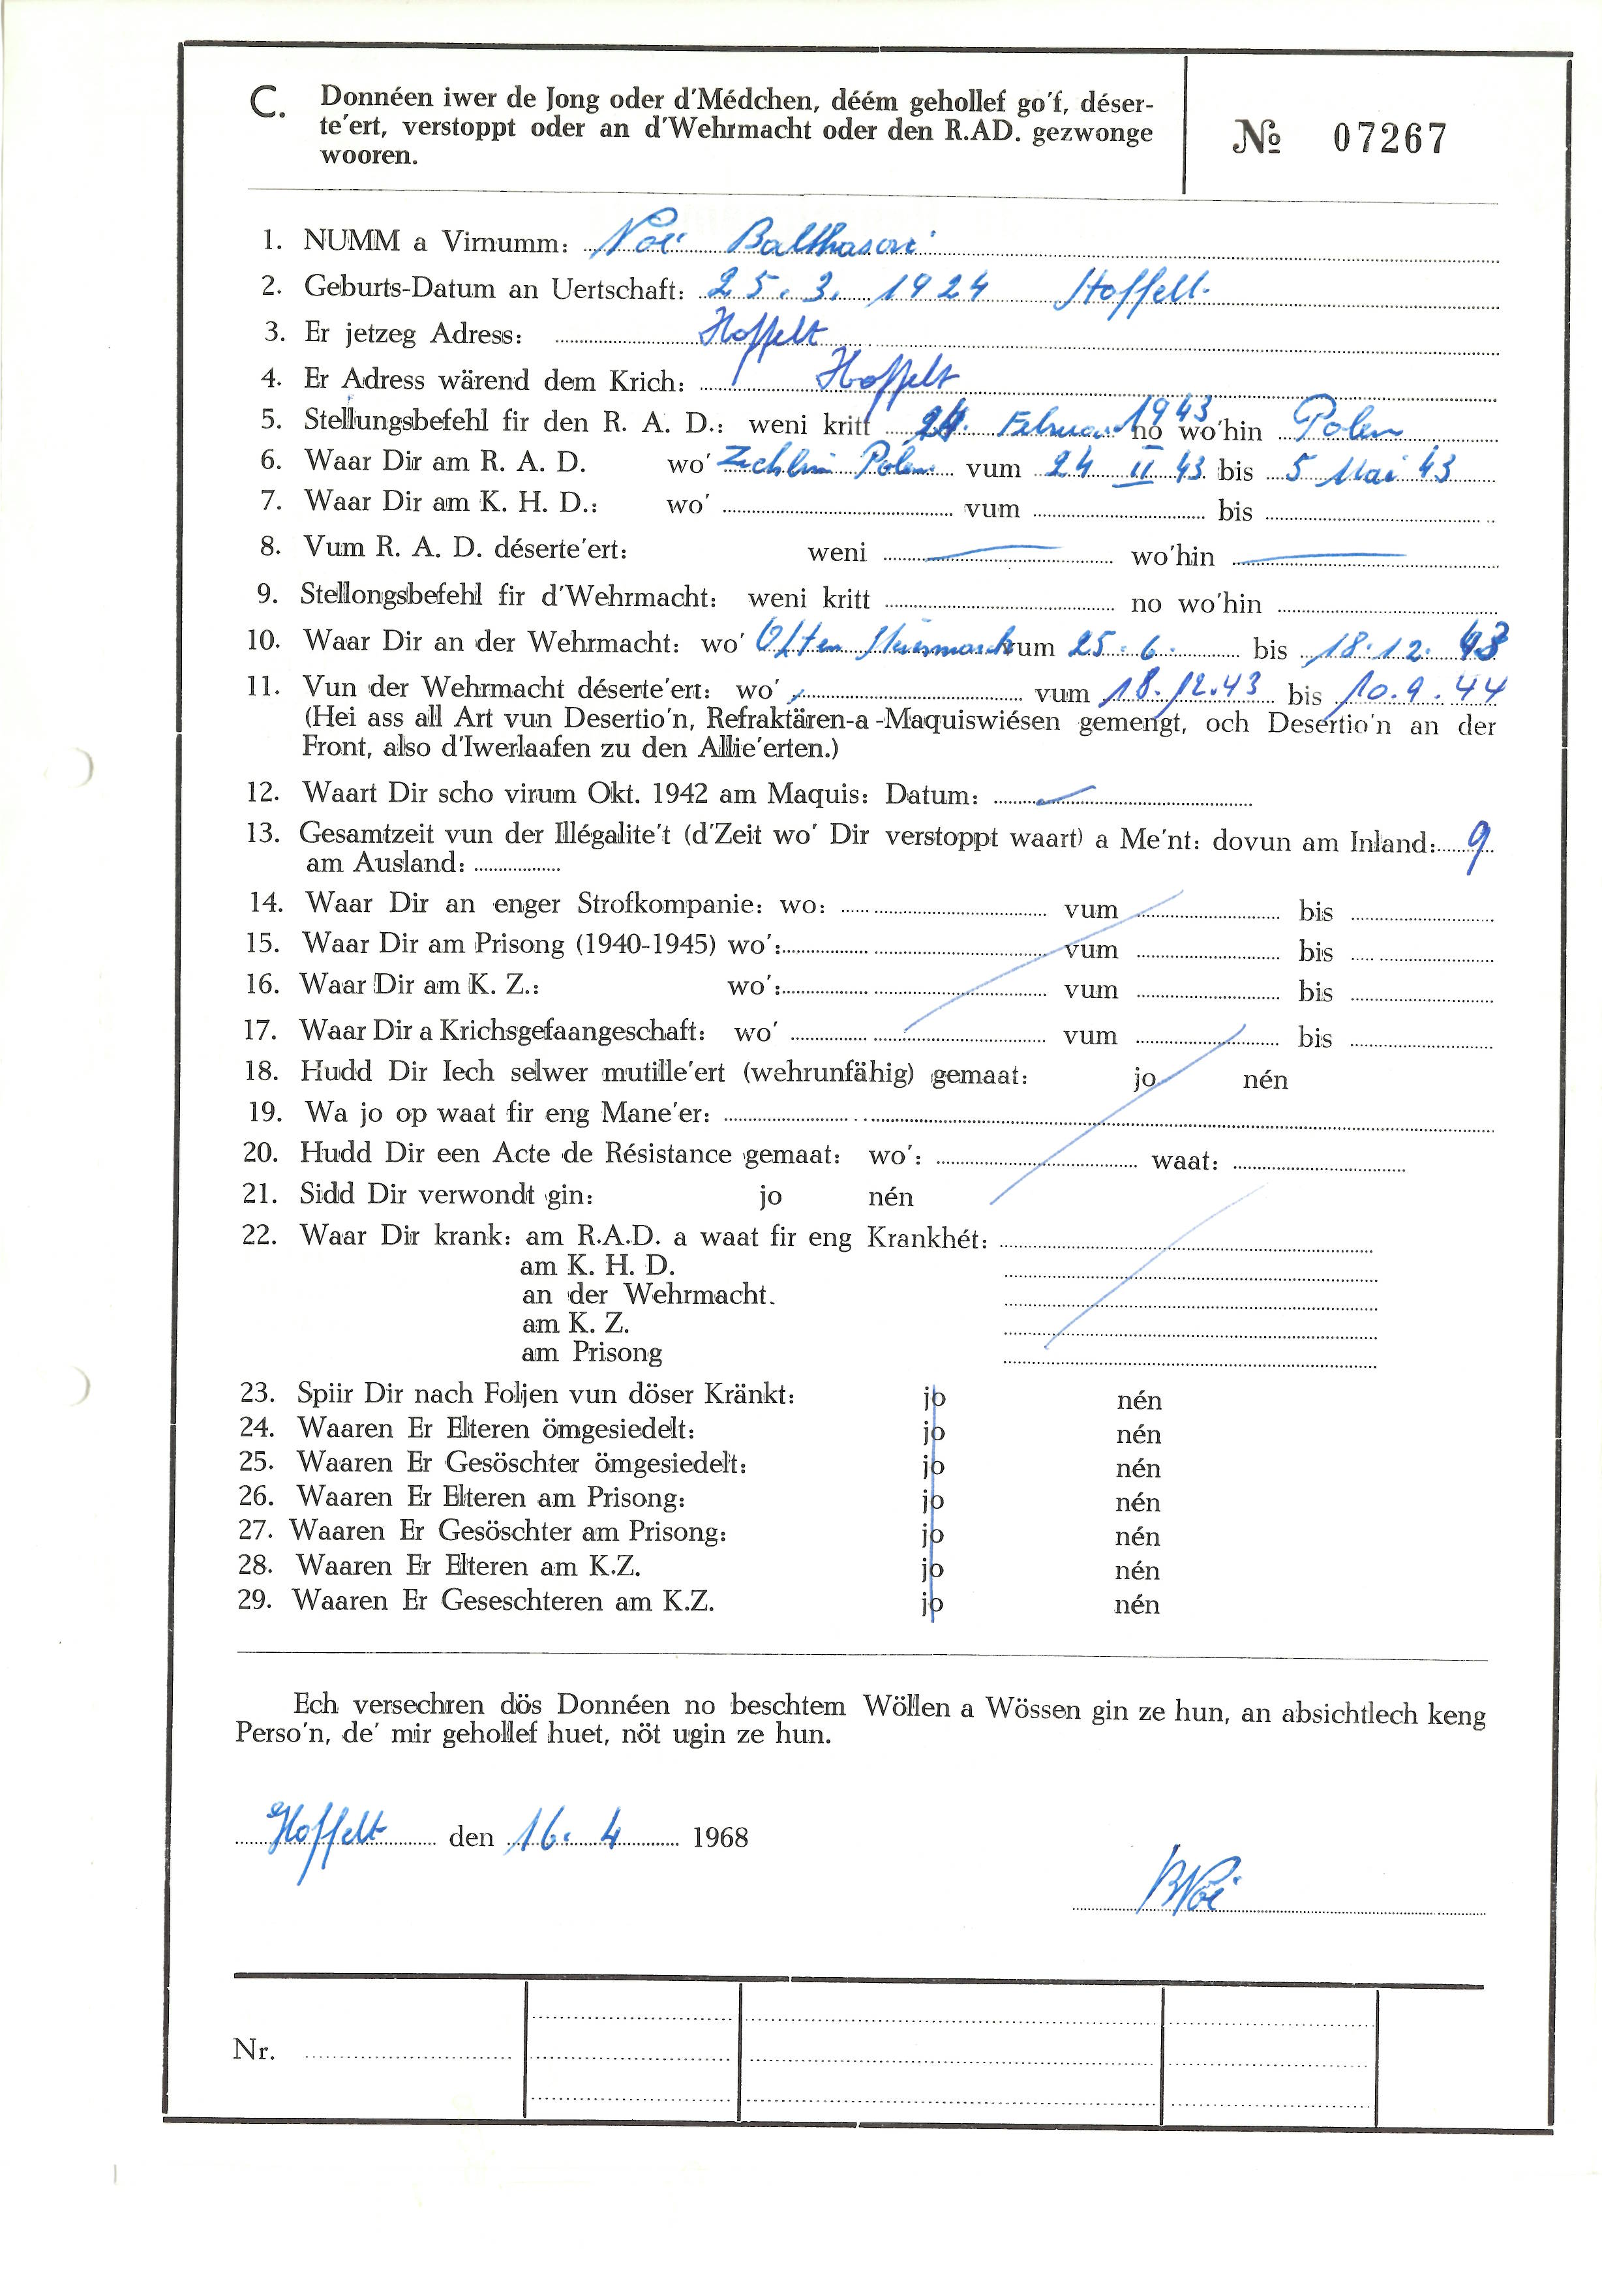 C. Donnéen iwer de Jong oder d'Médchen, déém gehollef go'f, déser-
te'ert, verstoppt oder an d'Wehrmacht oder den R.AD. gezwonge
wooren.
№ 07267
1. NUMM a Virnumm: Balthasar
2. Geburts-Datum an Uertschaft: 25. 3. 1924 Hoffelt.
3. Er jetzeg Adress: Hoffelt
4. Er Adress wärend dem Krich: Hoffelt
5. Stellungsbefehl fir den R. A. D.: weni kritt 24. Februar 1943 no wo'hin Polen
6. Waar Dir am R. A. D. wo' Zechlin Polen vum 24 II 43 bis 5 Mai 43
7. Waar Dir am K. H. D.: wo' vum bis
8. Vum R. A. D. déserte'ert: weni wo'hin
9. Stellongsbefehl fir d'Wehrmacht: weni kritt no wo'hin
10. Waar Dir an der Wehrmacht: wo' Steiermark vum 25. 6. bis 18. 12. 43
11. Vun der Wehrmacht déserte'ert: wo' vum 18. 12. 43 bis 10. 9. 44
(Hei ass all Art vun Desertio'n, Refraktären-a -Maquiswiésen gemengt, och Desertio'n an der
Front, also d'Iwerlaafen zu den Allie'erten.)
12. Waart Dir scho virum Okt. 1942 am Maquis: Datum:
13. Gesamtzeit vun der Illégalite't (d'Zeit wo' Dir verstoppt waart) a Me'nt: dovun am Inland: 9
am Ausland:
14. Waar Dir an enger Strofkompanie: wo: vum bis
15. Waar Dir am Prisong (1940-1945) wo': vum bis
16. Waar Dir am K. Z.: wo': vum bis
17. Waar Dir a Krichsgefaangeschaft: wo' vum bis
18. Hudd Dir Iech selwer mutille'ert (wehrunfähig) gemaat: jo nén
19. Wa jo op waat fir eng Mane'er:
20. Hudd Dir een Acte de Résistance gemaat: wo': waat:
21. Sidd Dir verwondt gin: jo nén
22. Waar Dir krank: am R.A.D. a waat fir eng Krankhét:
am K. H. D.
an der Wehrmacht.
am K. Z.
am Prisong
23. Spiir Dir nach Foljen vun döser Kränkt: jo nén
24. Waaren Er Elteren ömgesiedelt: jo nén
25. Waaren Er Gesöschter ömgesiedelt: jo nén
26. Waaren Er Elteren am Prisong: jo nén
27. Waaren Er Gesöschter am Prisong: jo nén
28. Waaren Er Elteren am K.Z. jo nén
29. Waaren Er Geseschteren am K.Z. jo nén
Ech versechren dös Donnéen no beschtem Wöllen a Wössen gin ze hun, an absichtlech keng
Perso'n, de' mir gehollef huet, nöt ugin ze hun.
Hoffelt den 16. 4 1968
Nr.